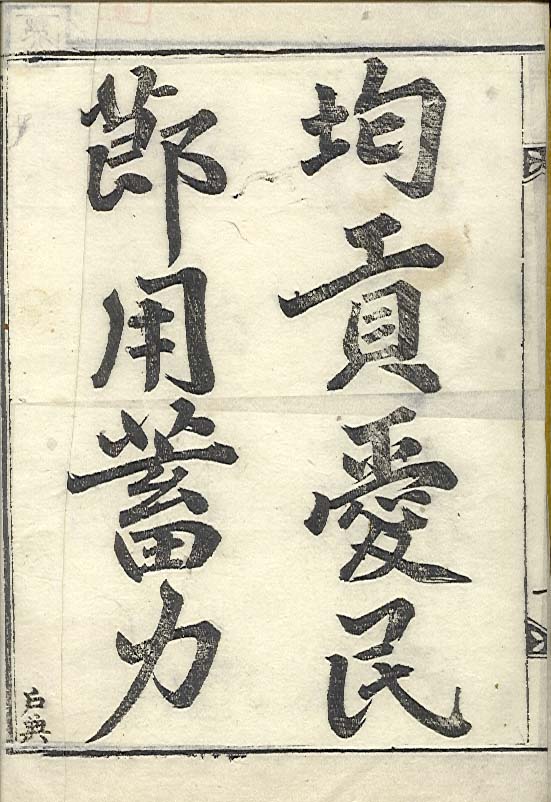 均貢愛民
莭用蓄力
戶典